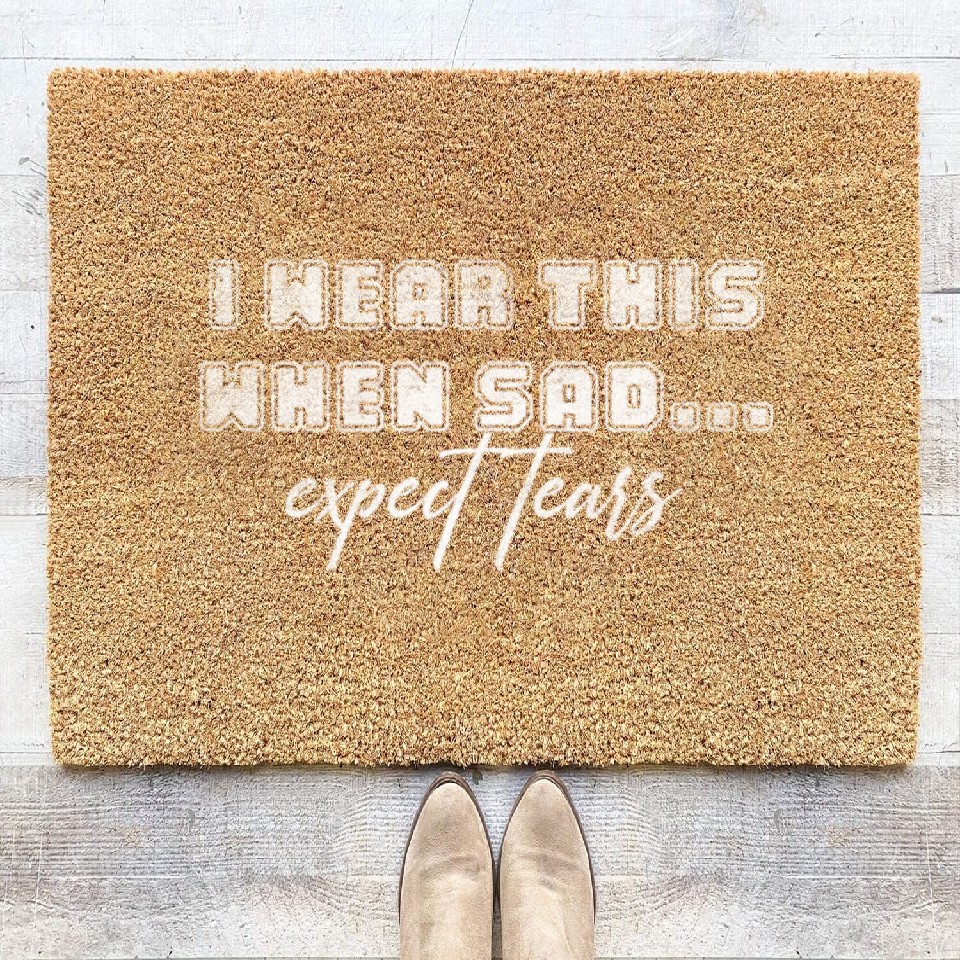 I WEAR THIS
WHEN SAD...
expect Tears